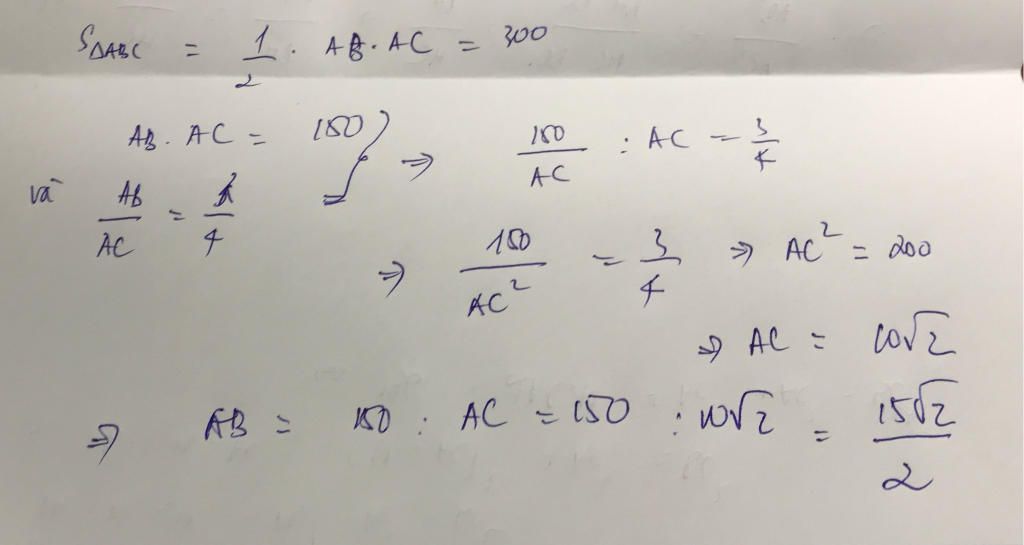 S△ABC = 1/2 . AB . AC = 300
AB . AC = 150 } ⇒ 150/AC : AC = 3/4
và AB/AC = 3/4
⇒ 150/AC² = 3/4 ⇒ AC² = 200
⇒ AC = 10√2
⇒ AB = 150 : AC = 150 : 10√2 = 15√2/2